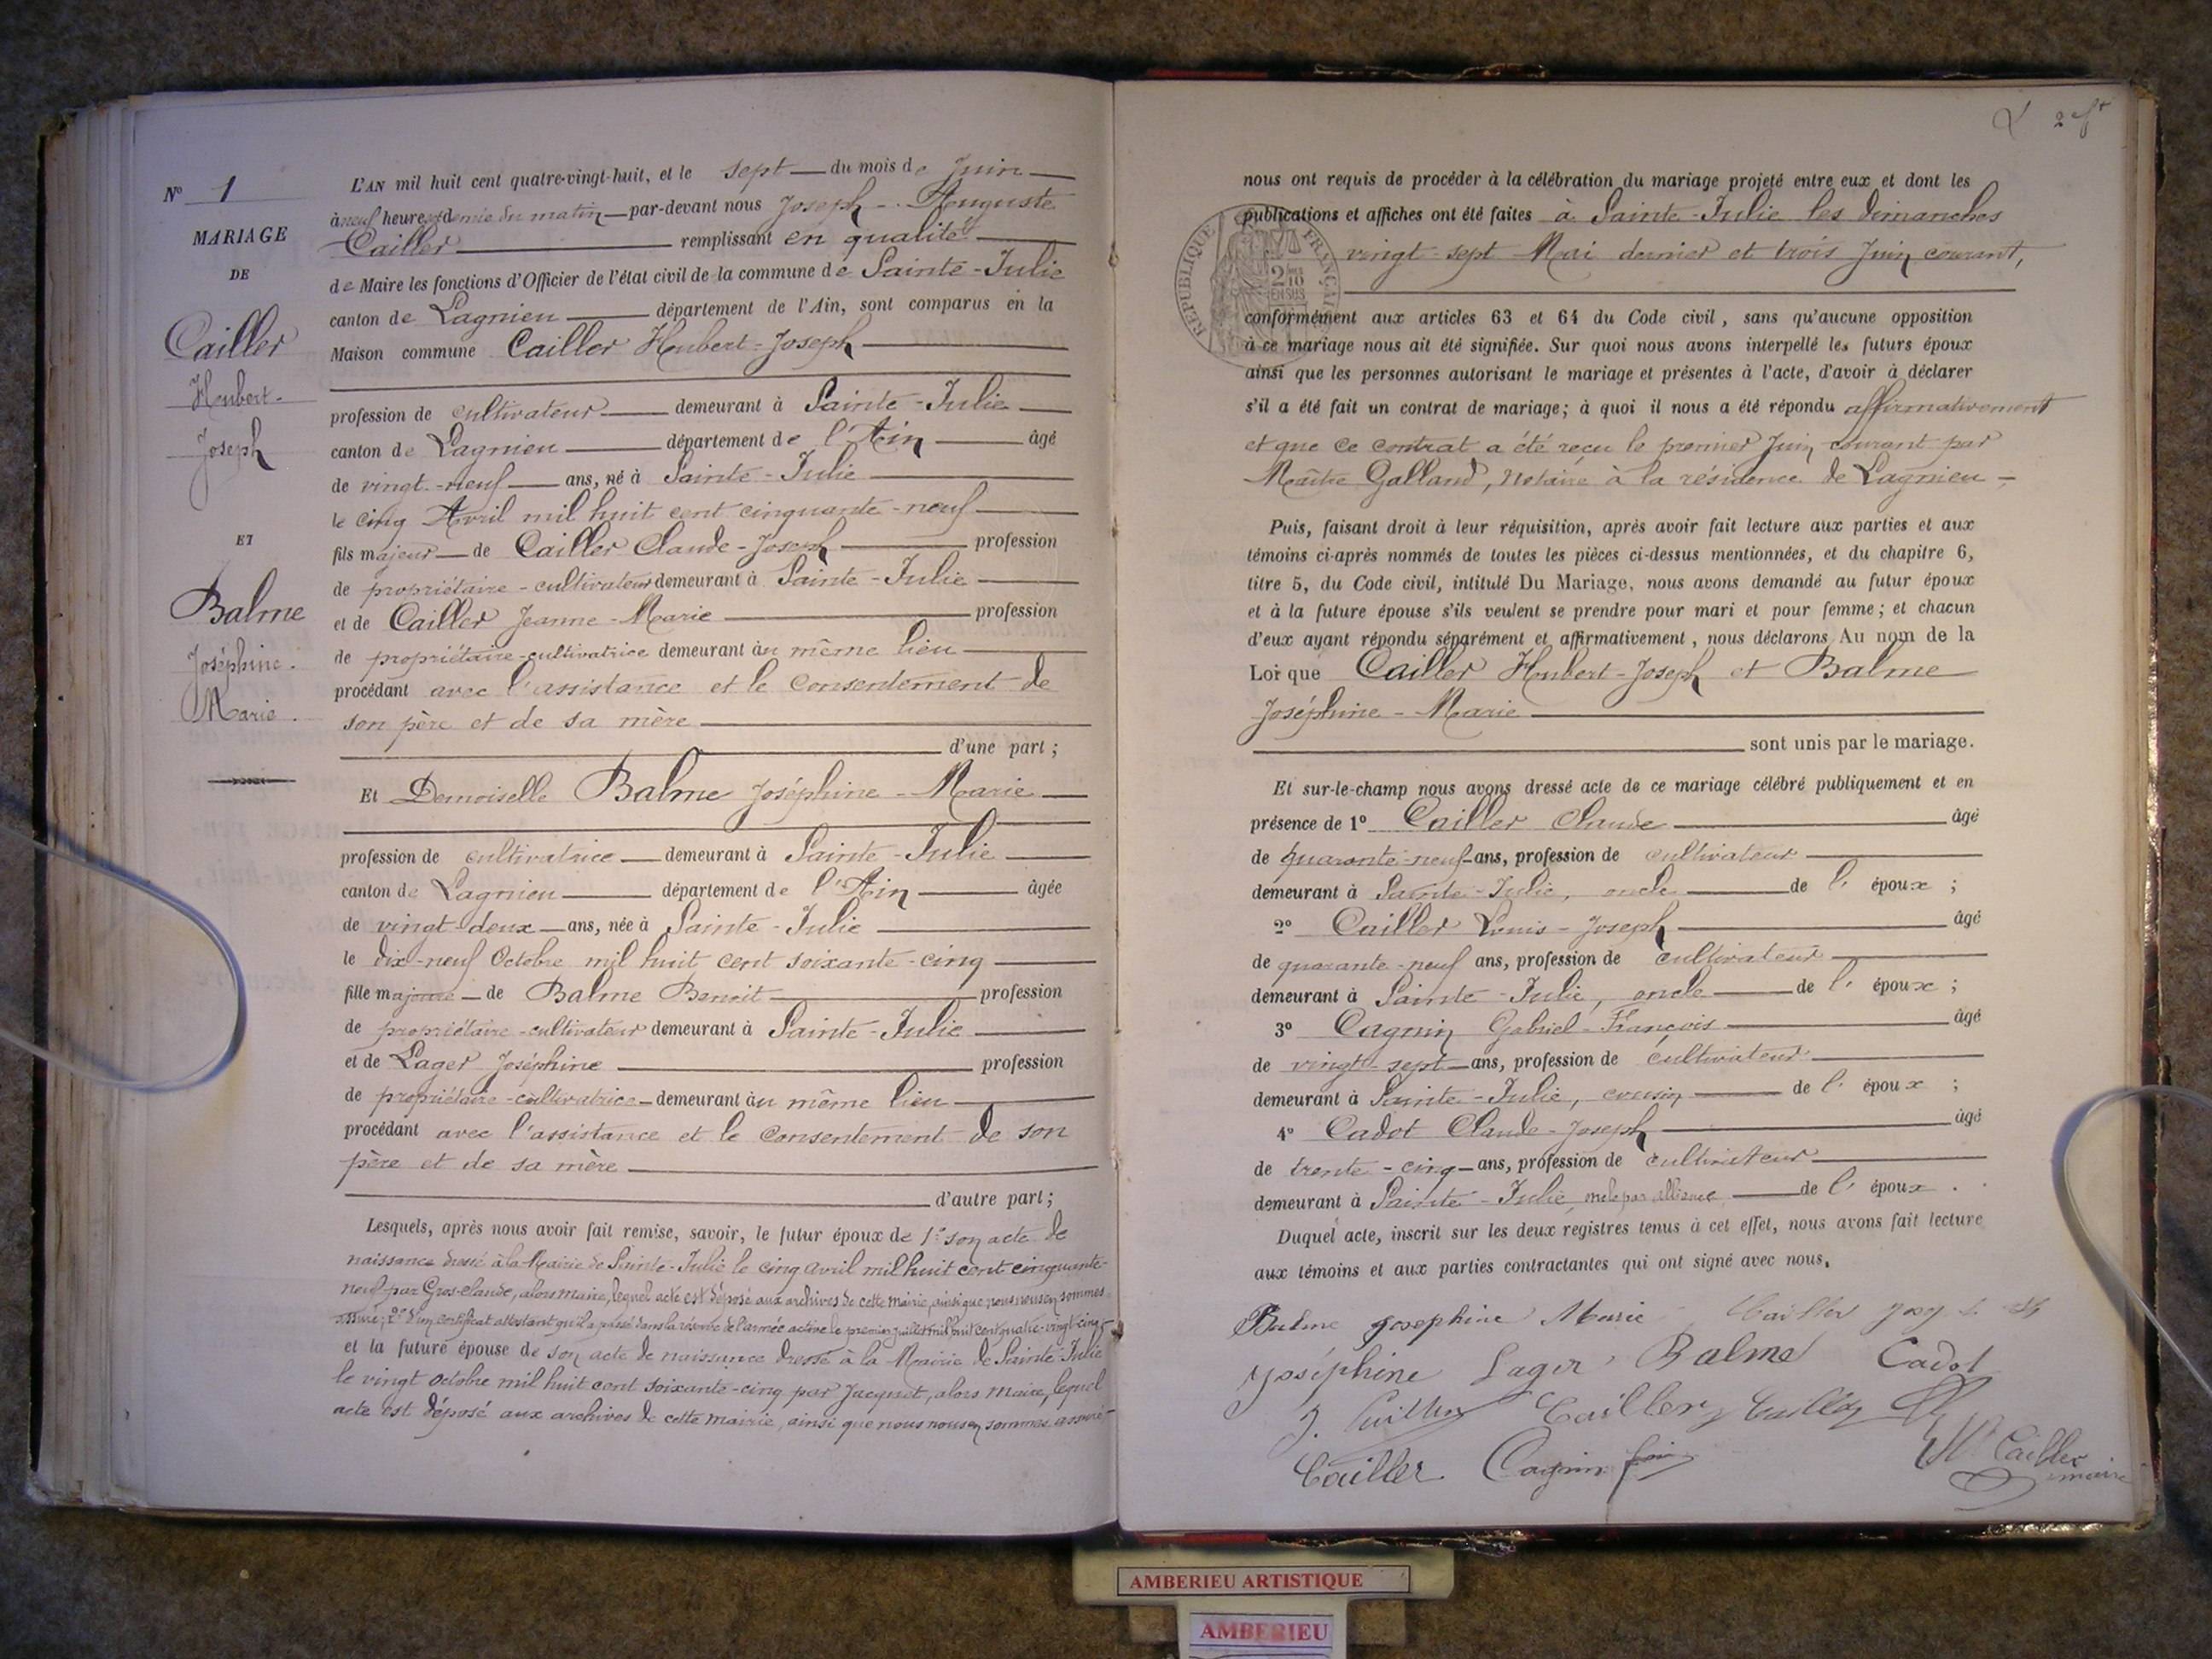 N° 1
MARIAGE
DE
Cailler
Hubert-
Joseph
ET
Balme
Joséphine-
Marie.
L'AN mil huit cent quatre-vingt-huit, et le sept du mois de Juin
à neuf heures et demie du matin par-devant nous Joseph-Auguste
Cailler remplissant en qualité
de Maire les fonctions d'Officier de l'état civil de la commune de Sainte-Julie
canton de Lagnieu département de l'Ain, sont comparus en la
Maison commune Cailler Hubert-Joseph
profession de cultivateur demeurant à Sainte-Julie
canton de Lagnieu département de l'Ain âgé
de vingt-neuf ans, né à Sainte-Julie
le cinq Avril mil huit cent cinquante-neuf
fils majeur de Cailler Claude-Joseph profession
de propriétaire-cultivateur demeurant à Sainte-Julie
et de Cailler Jeanne-Marie profession
de propriétaire-cultivatrice demeurant au même lieu
procédant avec l'assistance et le consentement de
son père et de sa mère
d'une part ;
Et Demoiselle Balme Joséphine-Marie
profession de cultivatrice demeurant à Sainte-Julie
canton de Lagnieu département de l'Ain âgée
de vingt-deux ans, née à Sainte-Julie
le dix-neuf Octobre mil huit cent soixante-cinq
fille majeure de Balme Benoit profession
de propriétaire-cultivateur demeurant à Sainte-Julie
et de Lager Joséphine profession
de propriétaire-cultivatrice demeurant au même lieu
procédant avec l'assistance et le consentement de son
père et de sa mère
d'autre part ;
Lesquels, après nous avoir fait remise, savoir, le futur époux de 1° son acte de
naissance dressé à la Mairie de Sainte-Julie le cinq avril mil huit cent cinquante-
neuf par Gros-claude, alors maire, lequel acte est déposé aux archives de cette mairie, ainsi que nous nous en sommes
assuré; 2° d'un certificat attestant qu'il a passé dans la réserve de l'armée active le premier juillet mil huit cent quatre-vingt-cinq
et la future épouse de son acte de naissance dressé à la Mairie de Sainte-Julie
le vingt octobre mil huit cent soixante-cinq par Jacquet, alors maire, lequel
acte est déposé aux archives de cette mairie, ainsi que nous nous en sommes assuré-
nous ont requis de procéder à la célébration du mariage projeté entre eux et dont les
publications et affiches ont été faites à Sainte-Julie les dimanches
vingt-sept Mai dernier et trois Juin courant,
RÉPUBLIQUE FRANÇAISE
2/10
EN SUS
conformément aux articles 63 et 64 du Code civil, sans qu'aucune opposition
à ce mariage nous ait été signifiée. Sur quoi nous avons interpellé les futurs époux
ainsi que les personnes autorisant le mariage et présentes à l'acte, d'avoir à déclarer
s'il a été fait un contrat de mariage ; à quoi il nous a été répondu affirmativement
et que ce contrat a été reçu le premier Juin courant par
Maître Galland, notaire à la résidence de Lagnieu-
Puis, faisant droit à leur réquisition, après avoir fait lecture aux parties et aux
témoins ci-après nommés de toutes les pièces ci-dessus mentionnées, et du chapitre 6,
titre 5, du Code civil, intitulé Du Mariage, nous avons demandé au futur époux
et à la future épouse s'ils veulent se prendre pour mari et pour femme ; et chacun
d'eux ayant répondu séparément et affirmativement, nous déclarons Au nom de la
Loi que Cailler Hubert-Joseph et Balme
Joséphine-Marie
sont unis par le mariage.
Et sur-le-champ nous avons dressé acte de ce mariage célébré publiquement et en
présence de 1° Cailler Claude âgé
de quarante-neuf ans, profession de cultivateur
demeurant à Sainte-Julie, oncle de l'époux ;
2° Cailler Louis-Joseph âgé
de quarante-neuf ans, profession de cultivateur
demeurant à Sainte-Julie, oncle de l'époux ;
3° Cagnin Gabriel-François âgé
de vingt-sept ans, profession de cultivateur
demeurant à Sainte-Julie, cousin de l'époux ;
4° Cadot Claude-Joseph âgé
de trente-cinq ans, profession de cultivateur
demeurant à Sainte-Julie, oncle par alliance de l'époux.
Duquel acte, inscrit sur les deux registres tenus à cet effet, nous avons fait lecture
aux témoins et aux parties contractantes qui ont signé avec nous.
Balme Josephine Marie Cailler
Joséphine Lager Balme Cadot
J. Cailler Cailler Cailler
Cailler Cagnin
Cailler
maire
AMBERIEU ARTISTIQUE
AMBERIEU